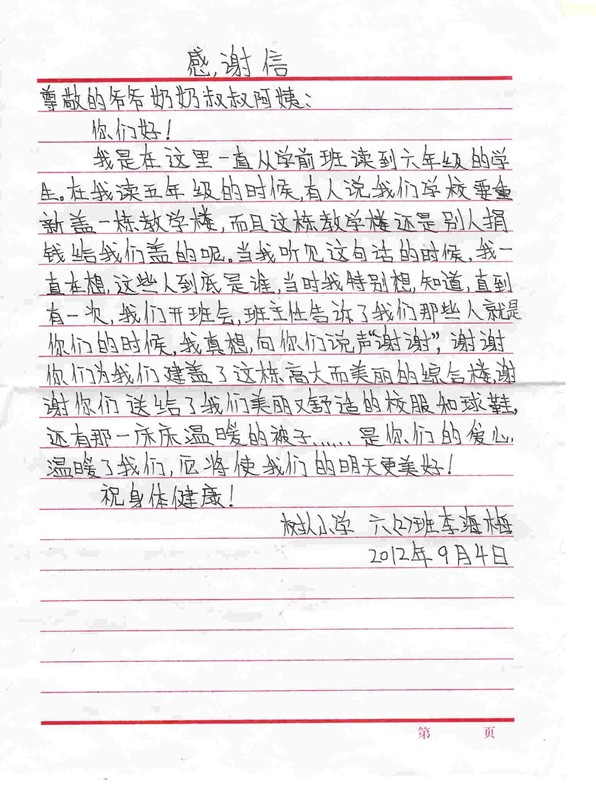 感谢信
尊敬的爷爷奶奶叔叔阿姨：
你们好！
我是在这里一直从学前班读到六年级的学
生。在我读五年级的时候，有人说，我们学校要重
新盖一栋教学楼，而且这栋教学楼还是别人捐
钱给我们盖的呢。当我听见这句话的时候，我一
直在想，这些人到底是谁，当时我特别想，知道，直到
有一次，我们开班会，班主任告诉了我们那些人就是
你们的时候，我真想，向你们说声“谢谢”，谢谢
你们为我们建盖了这栋高大而美丽的综合楼，谢
谢你们送给了我们美丽又舒适的校服和球鞋，
还有那一床床温暖的被子……是你们的爱心，
温暖了我们，将使我们的明天更美好！
祝身体健康！
小学 六（2）班李海梅
2012年9月4日
第 页